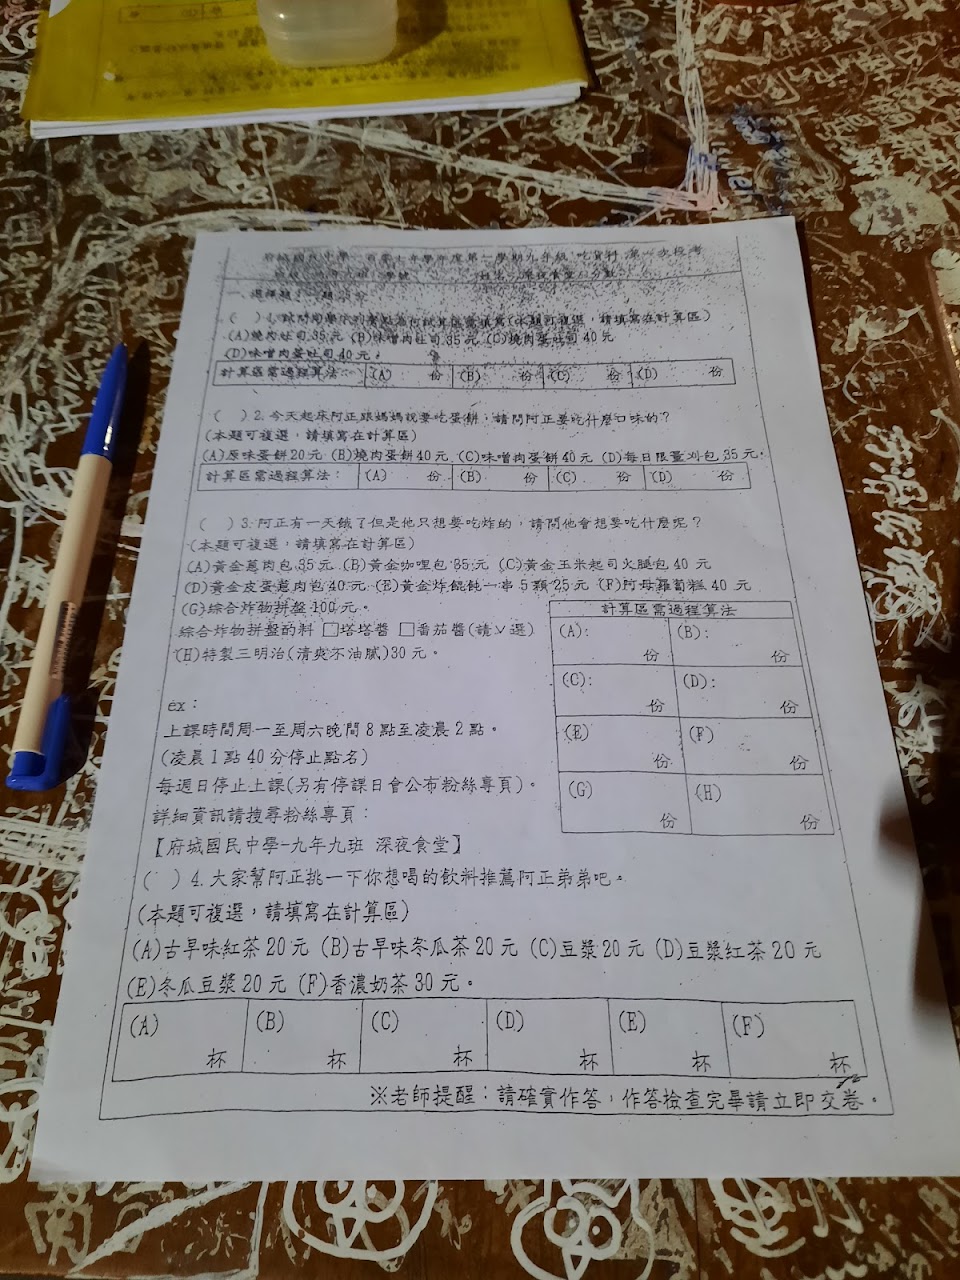 府城國民中學 百零七年學年度第一學期九年級 吃貨科 第一次段考
一、選擇題
( )1.
(本題可複選，請填寫在計算區)
(A)燒肉吐司35元 (B)味噌肉吐司35元 (C)燒肉蛋吐司40元
(D)味噌肉蛋吐司40元。
計算區需過程算法： (A) 份 (B) 份 (C) 份 (D) 份
( )2.今天起床阿正跟媽媽說要吃蛋餅，請問阿正要吃什麼口味的？
(本題可複選，請填寫在計算區)
(A)原味蛋餅20元 (B)燒肉蛋餅40元 (C)味噌肉蛋餅40元 (D)每日限量刈包35元。
計算區需過程算法： (A) 份 (B) 份 (C) 份 (D) 份
( )3.阿正有一天餓了但是他只想要吃炸的，請問他會想要吃什麼呢？
(本題可複選，請填寫在計算區)
(A)黃金蔥肉包35元 (B)黃金咖哩包35元 (C)黃金玉米起司火腿包40元
(D)黃金皮蛋蔥肉包40元 (E)黃金炸餛飩一串5顆25元 (F)阿母蘿蔔糕40元
(G)綜合炸物拼盤100元。
綜合炸物拼盤酌料 □塔塔醬 □番茄醬(請ˇ選)
(H)特製三明治(清爽不油膩)30元。
計算區需過程算法
(A): 份 (B): 份
(C): 份 (D): 份
(E) 份 (F) 份
(G) 份 (H) 份
ex：
上課時間周一至周六晚間8點至凌晨2點。
(凌晨1點40分停止點名)
每週日停止上課(另有停課日會公布粉絲專頁)。
詳細資訊請搜尋粉絲專頁：
【府城國民中學-九年九班 深夜食堂】
( )4.大家幫阿正挑一下你想喝的飲料推薦阿正弟弟吧。
(本題可複選，請填寫在計算區)
(A)古早味紅茶20元 (B)古早味冬瓜茶20元 (C)豆漿20元 (D)豆漿紅茶20元
(E)冬瓜豆漿20元 (F)香濃奶茶30元。
(A) 杯 (B) 杯 (C) 杯 (D) 杯 (E) 杯 (F) 杯
※老師提醒：請確實作答，作答檢查完畢請立即交卷。